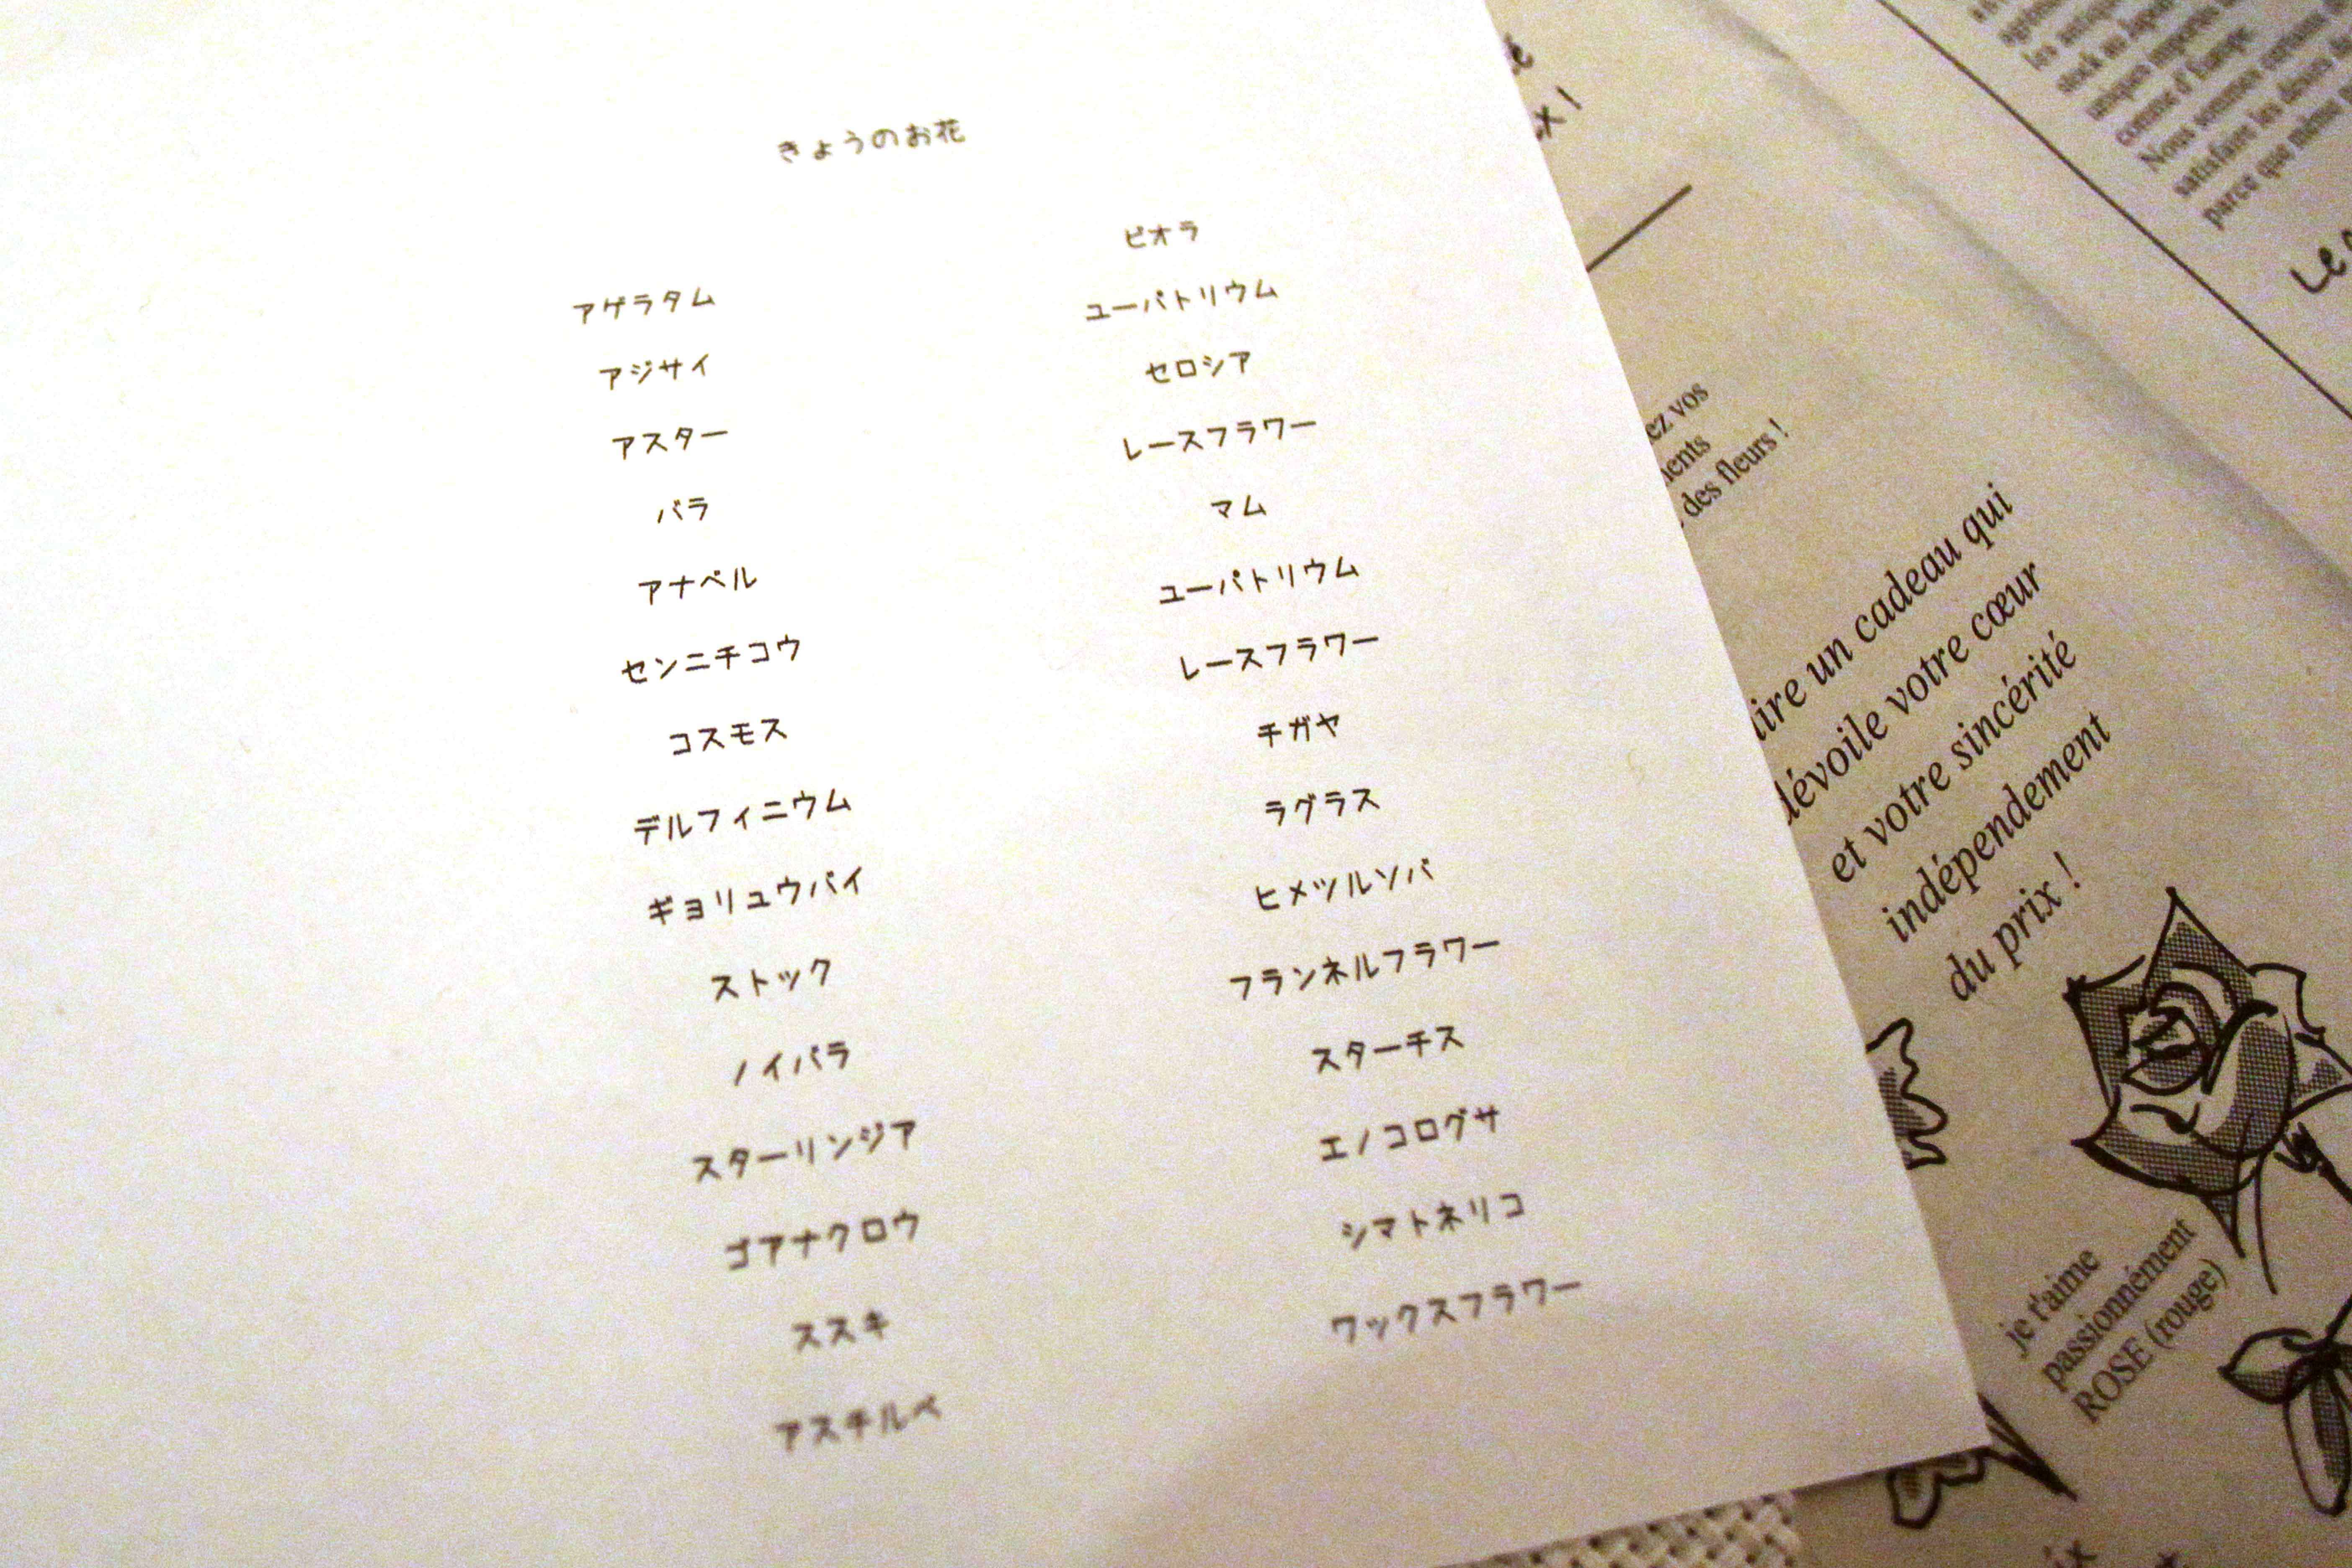 きょうのお花
アゲラタム
アジサイ
アスター
バラ
アナベル
センニチコウ
コスモス
デルフィニウム
ギョリュウバイ
ストック
ノイバラ
スターリンジア
ゴアナクロウ
ススキ
アスチルベ
ビオラ
ユーパトリウム
セロシア
レースフラワー
マム
ユーパトリウム
レースフラワー
チガヤ
ラグラス
ヒメツルソバ
フランネルフラワー
スターチス
エノコログサ
シマトネリコ
ワックスフラワー
ez vos
des fleurs !
un cadeau qui
dévoile votre cœur
et votre sincérité
indépendement
du prix !
je t'aime
passionnément
ROSE (rouge)
comme d'Europe
Nous sommes
satisfaire les
parce que même